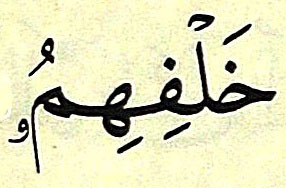 خَلْفِهِمُۥ